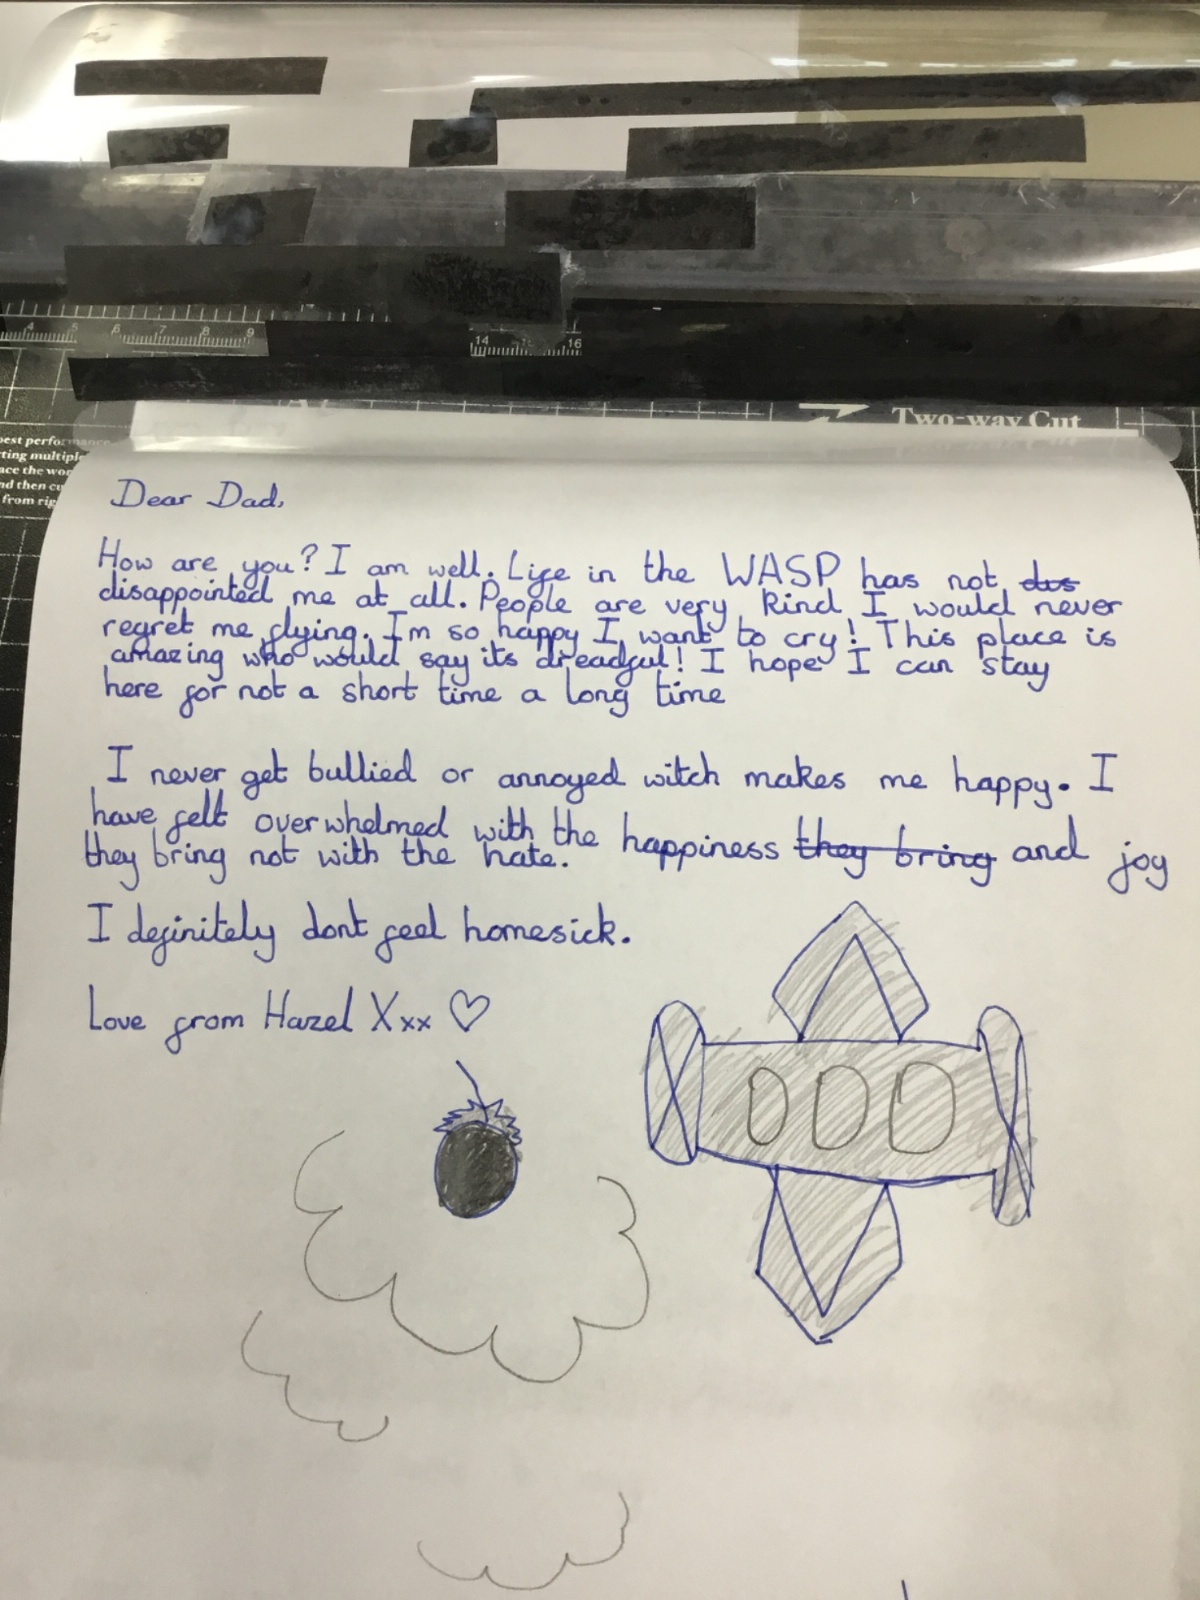 4 5 6 7 8 9
14 16
Two-way Cut
est perfor
ting multipl
ace the wor
nd then cu
from rig
Dear Dad,
How are you? I am well. Life in the WASP has not dis
disappointed me at all. People are very kind I would never
regret me flying. I'm so happy I want to cry! This place is
amazing who would say its dreadful! I hope I can stay
here for not a short time a long time
I never get bullied or annoyed witch makes me happy. I
have felt overwhelmed with the happiness they bring and joy
they bring not with the hate.
I definitely dont feel homesick.
Love from Hazel Xxx ♡